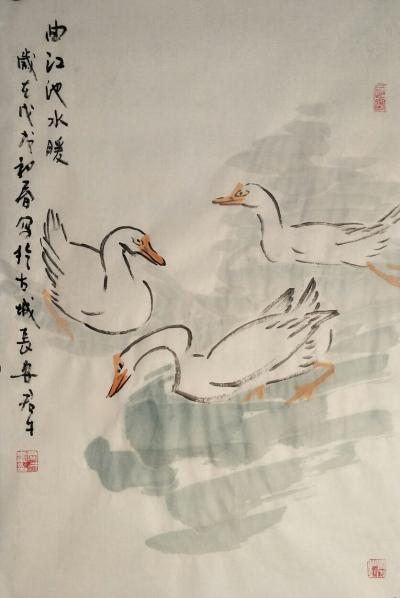 曲江池水暖
歲在戊戌初春寫於古城長安君午